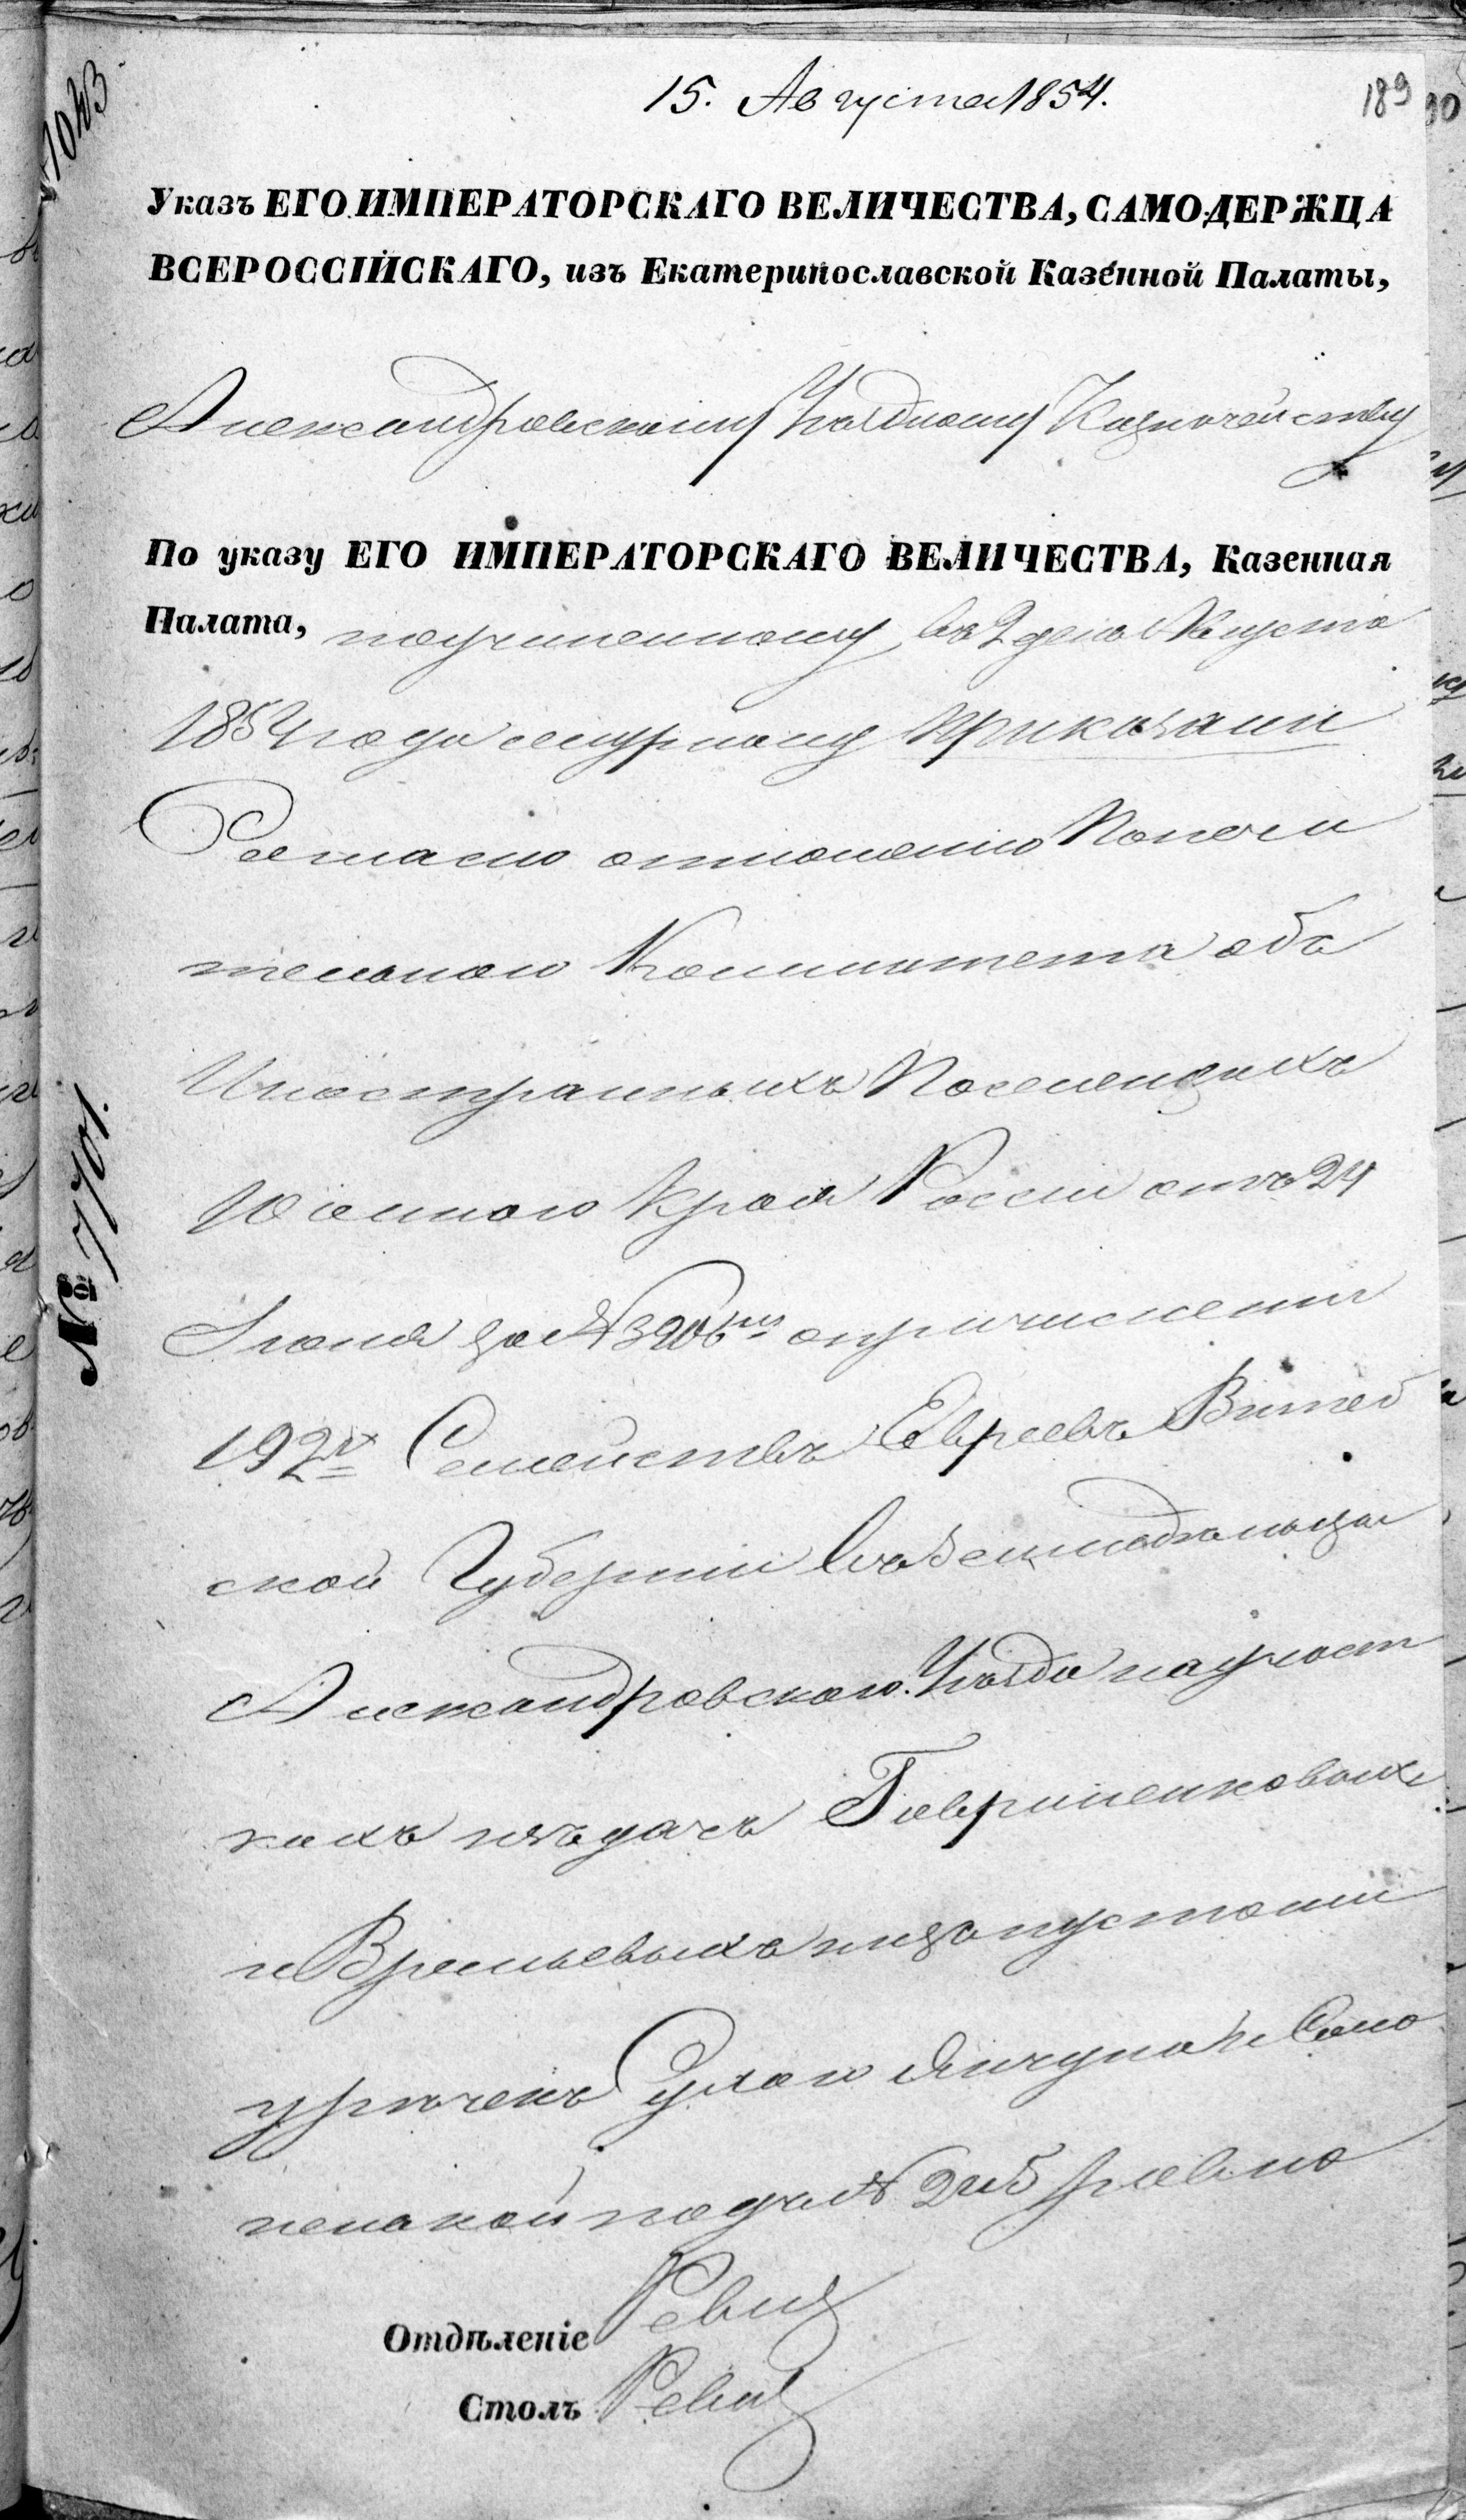 15. Августа 1854.
189
1043
Указъ ЕГО ИМПЕРАТОРСКАГО ВЕЛИЧЕСТВА, САМОДЕРЖЦА
ВСЕРОССІЙСКАГО, изъ Екатеринославской Казенной Палаты,
Александровскому Уѣздному Казначейству
По указу ЕГО ИМПЕРАТОРСКАГО ВЕЛИЧЕСТВА, Казенная
Палата, по учиненному въ 2 день Августа
1854 года журналу приказали
Согласно отношению Попечи
тельнаго Комитета объ
Иностранныхъ Поселенцахъ
Южнаго Края Россіи отъ 24
Іюня за № о причисленіи
192х Семействъ Евреевъ Витеб
ской Губерніи въ земледѣльцы
Александровскаго Уѣзда на участ
кахъ изъ дачъ Гавриленковыхъ
и Времьевыхъ и на пустоши
урочекъ Сухою и Само
нальной подъ № 2 и 5 равно
Отдѣленіе Ревиз
Столъ Ревиз
№ 7701.